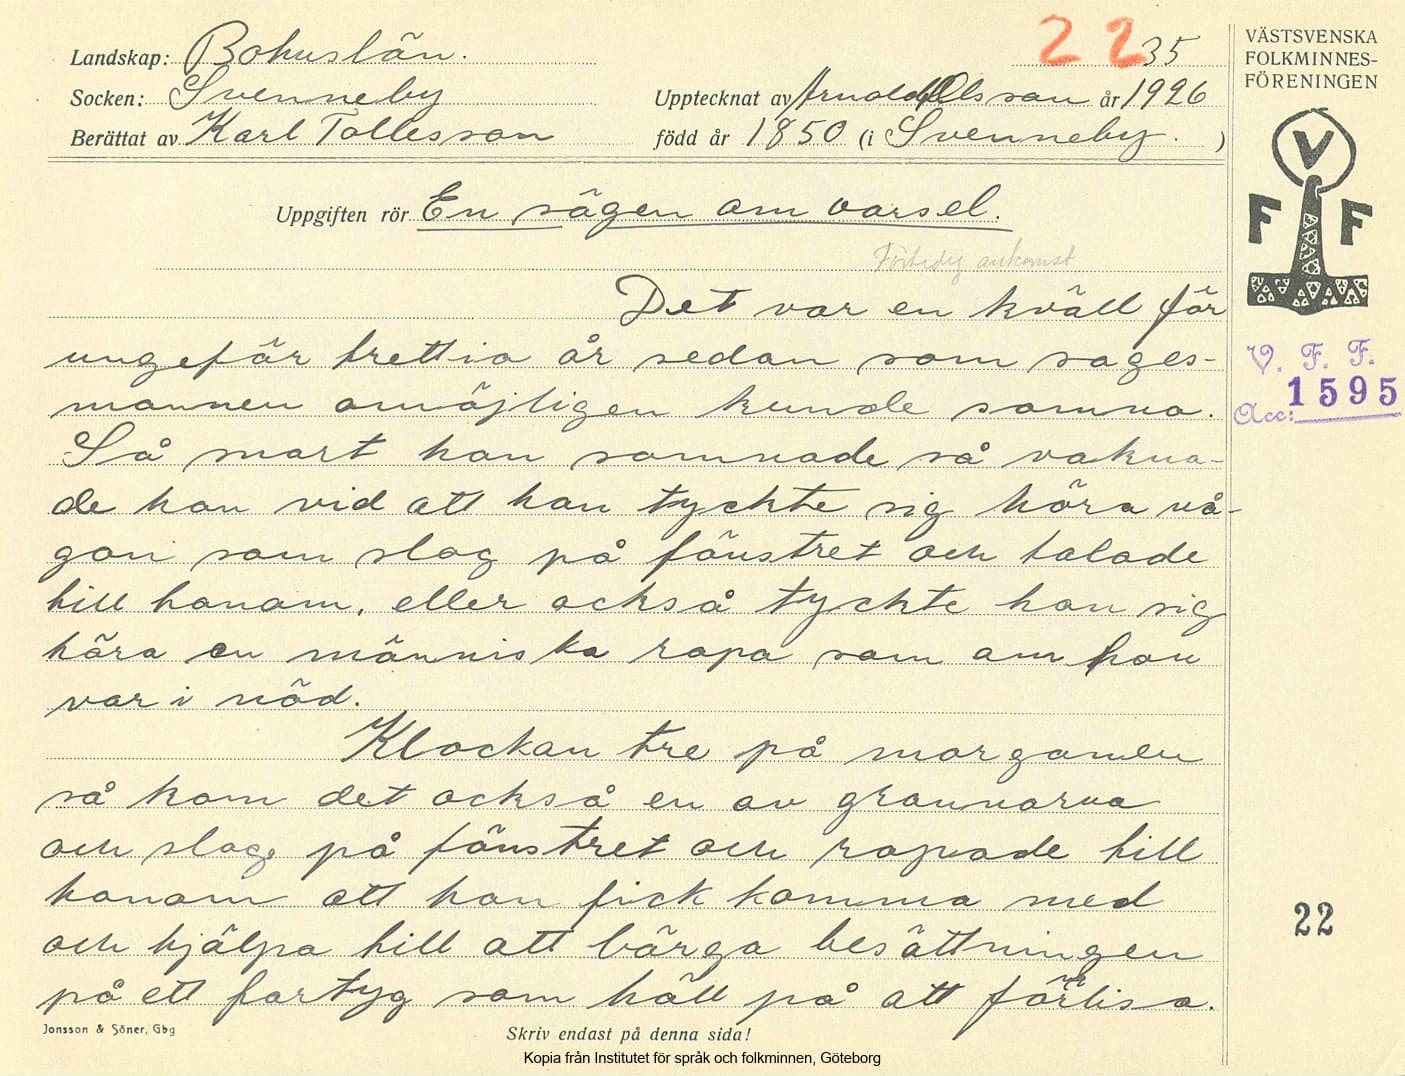 Landskap: Bohuslän.
Socken: Svenneby
Berättat av Karl Tollesson
22 35
Upptecknat av Arnold Olsson år 1926
född år 1850 (i Svenneby. )
VÄSTSVENSKA
FOLKMINNES-
FÖRENINGEN
V
F F
Uppgiften rör En sägen om varsel.
ankomst
Det var en kväll för
ungefär trettio år sedan som sages-
mannen omöjligen kunde somna.
Så snart han somnade så vakna-
de han vid att han tyckte sig höra nå-
gon som slog på fönstret och talade
till honom, eller också tyckte han sig
höra en människa ropa som om hon
var i nöd.
Klockan tre på morgonen
så kom det också en av grannarna
och slog på fönstret och ropade till
honom att han fick komma med
och hjälpa till att bärga besättningen
på ett fartyg som höll på att förlisa.
V. F. F.
Acc: 1595
22
Jonsson & Söner, Gbg
Skriv endast på denna sida!
Kopia från Institutet för språk och folkminnen, Göteborg